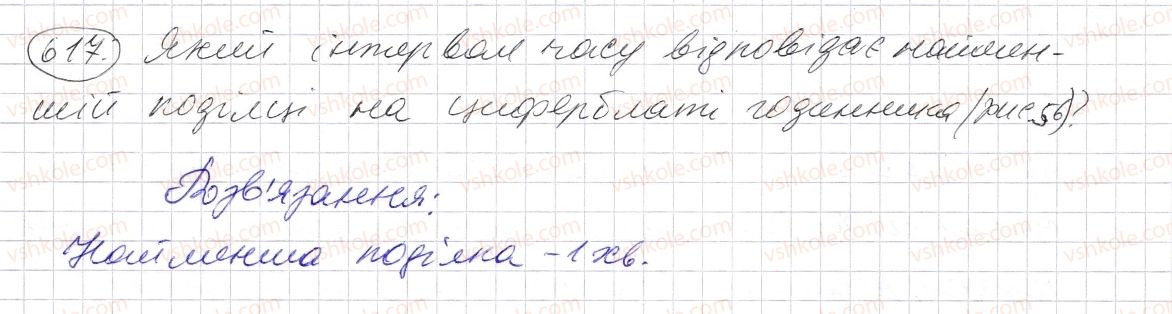 617. Який інтервал часу відповідає наймен-
шій поділці на циферблаті годинника (рис. 56)?
Розв'язання:
Найменша поділка - 1 хв.